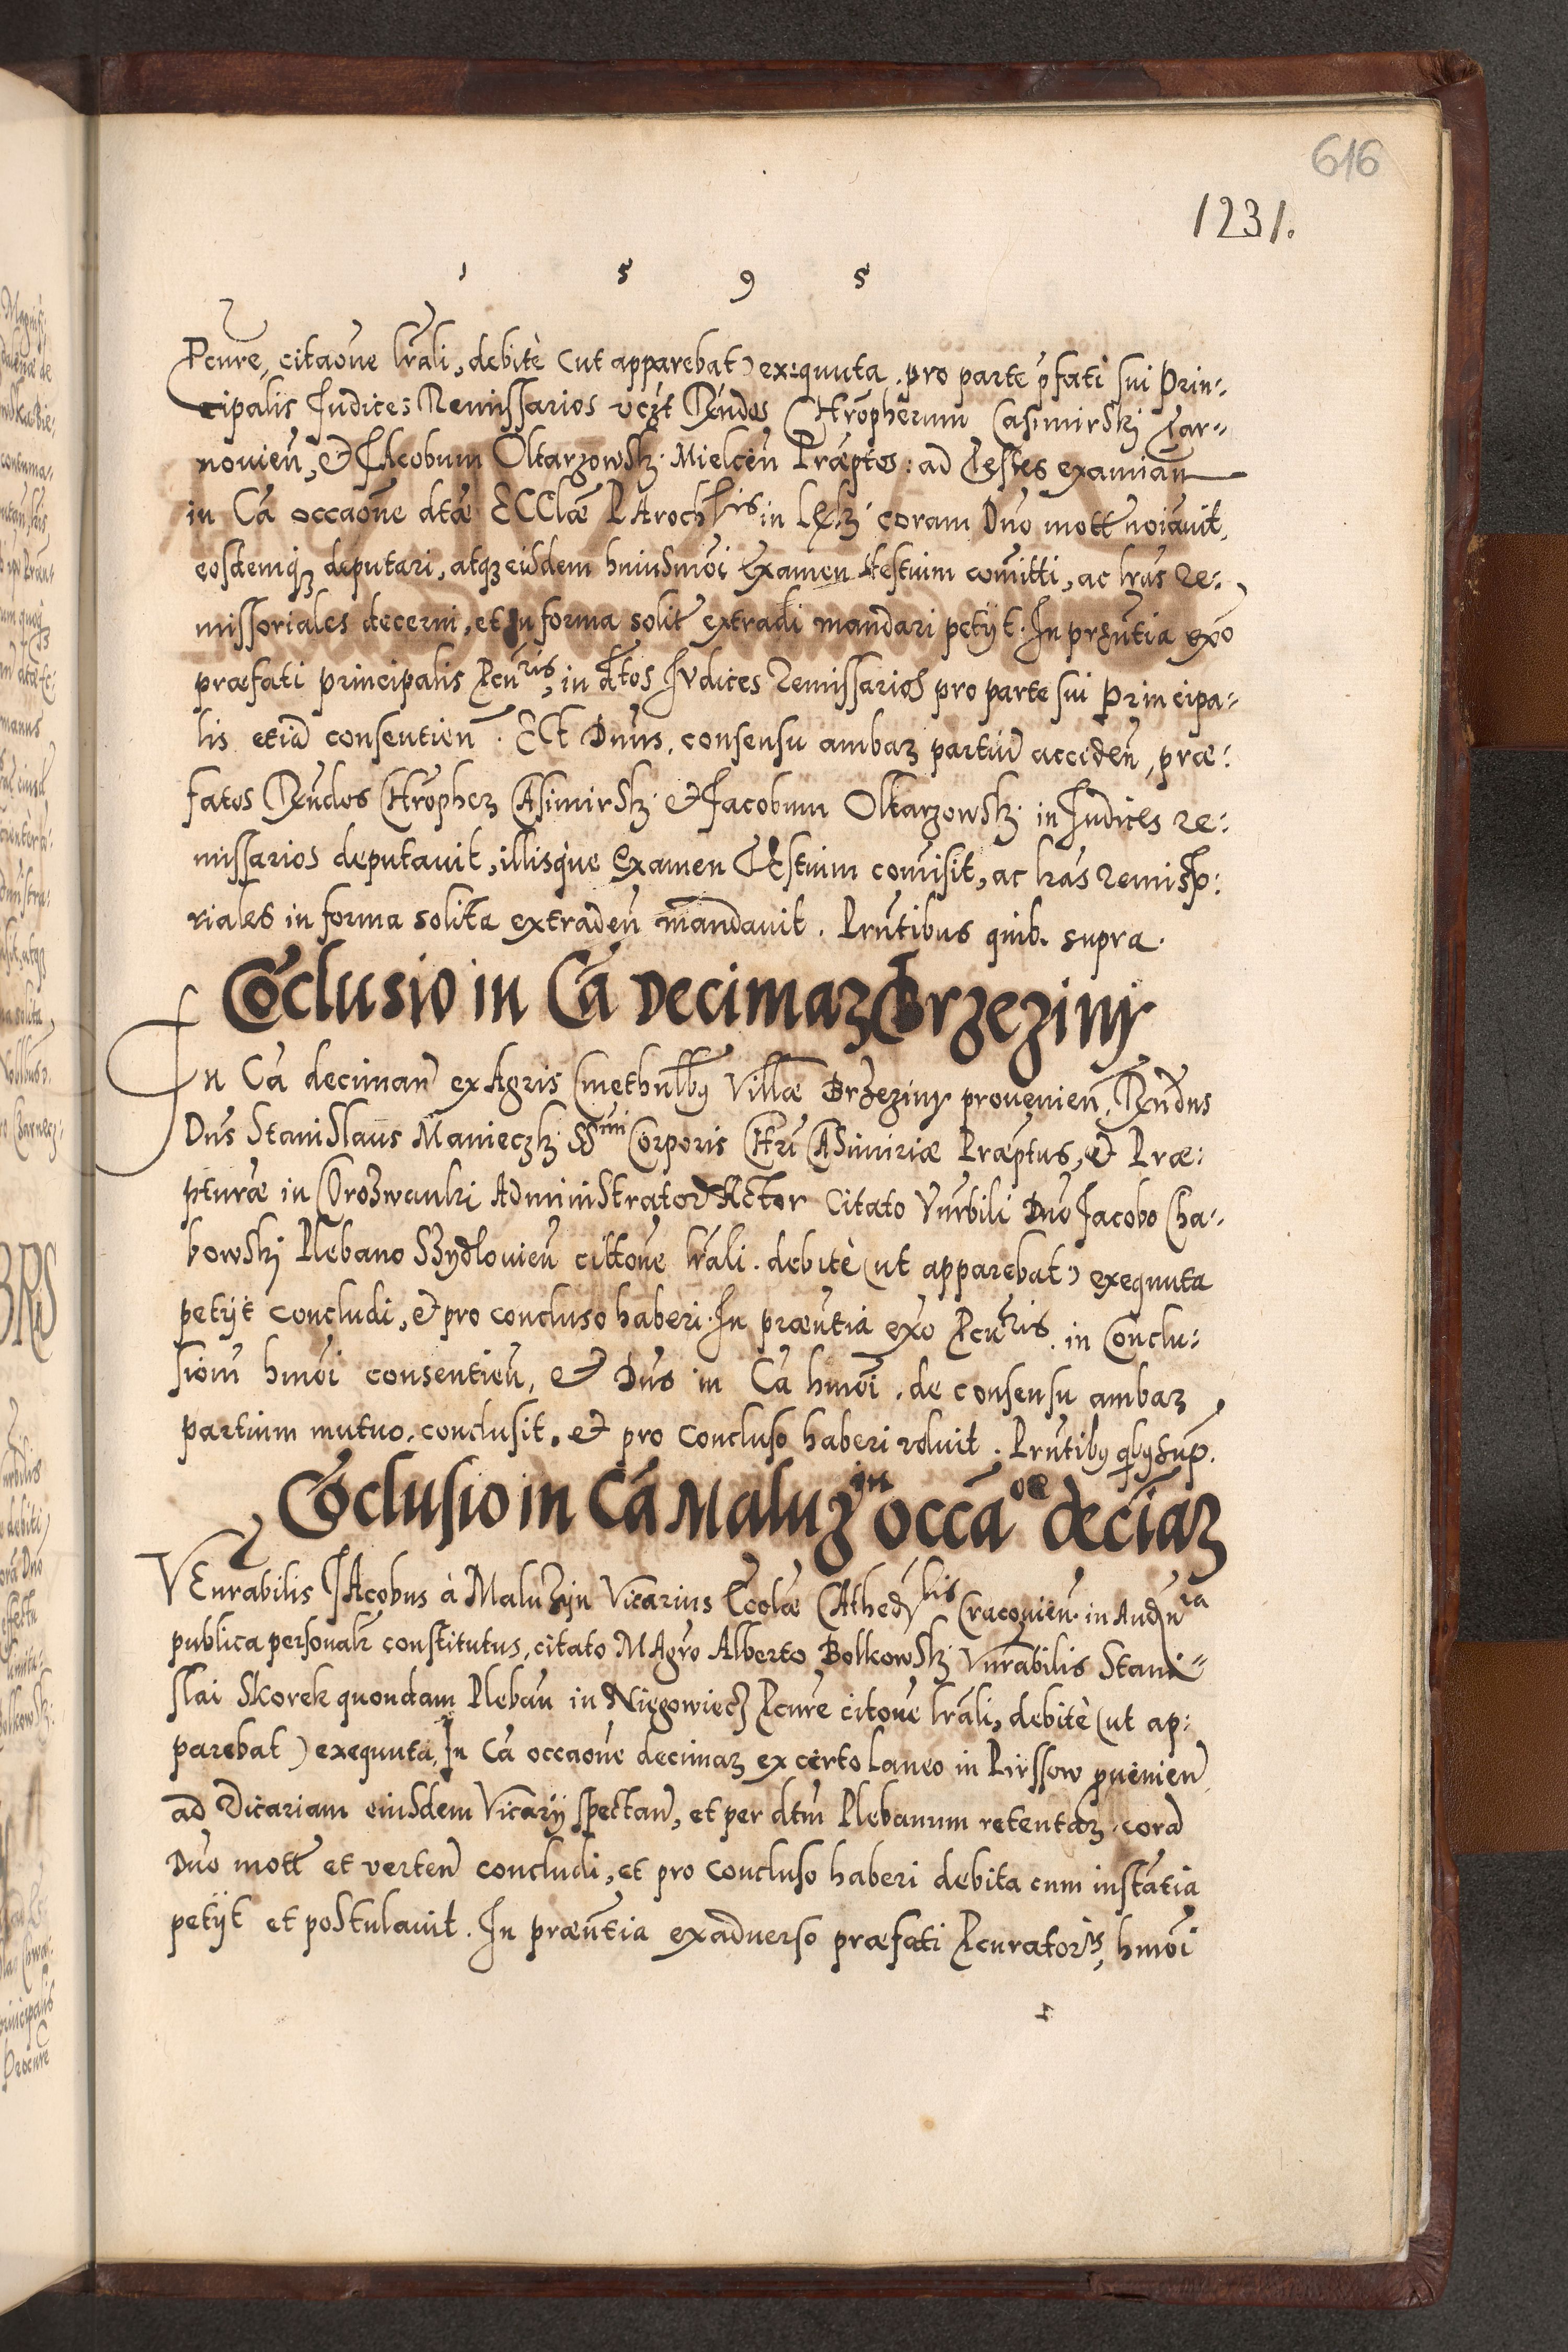 616
1231.
1 5 9 5
Pcure, citaoñe lrali, debitè (ut apparebat) exequuta, pro parte pfati sui Prin-
cipalis Judices Remissarios vczt Rndos Chrõpherum Casimirskj Tar-
nouien, et JAcobum Oltarzowskj Mielcen Præptos: ad Testes examian
in Ca occaone dtæ ECClæ PArochlis in coram Dno mott noiauit,
eosdemqz deputari, atqz eisdem huiusmoi Examen testium comitti, ac lras Re:
missoriales decerni, et in forma solit extradi mandari petijt. In prsntia exo
præfati principalis Pcuris, in dtos Judices Remissarios pro parte sui Principa-
lis etiã consentien. ECt Dnus, consensu ambaz partiũ acceden, præ:
fatos Rndos Chrõphez CAsimirskj et Jacobum Oltarzowskj in Judices re:
missarios deputauit, illisque Examen TEstium comisit, ac lras remisso:
riales in forma solita extraden mandauit. Prntibus quib. supra.
Cõclusio in Ca Decimaz Brzeziny
In Ca deciman ex Agris Cmethnlby Villæ Brzeziny prouenien, Rndus
Dns Stanislaus Manieczkj SSmi Corporis Chri CAsimiriæ Præptus, et Præ:
pturæ in Administrator Actor Citato Vnrbili Dno Jacobo Cha-
bowskj Plebano Szydlouien cittone lrali. debitè (ut apparebat) exequuta
petijt concludi, et pro concluso haberi. In præntia exo Pcuris. in Conclu:
sioni hmoi consentien, et Dns in Ca hmoi. de consensu ambaz
partium mutuo, conclusit, et pro Concluso haberi voluit. Prntiby qby sup.
Cõclusio in Ca Maluzin occaoe deciaz
VEnrabilis JAcobus à Maluzyn Vicarius Ecclæ CAthedrlis Cracouien. in Audnia
publica personalr constitutus, citato MAgro Alberto Bolkowskj Vnrabilis Stani-
slai Skorek quondam Pleban in Niegowiecz Pcure citone lrali, debitè (ut ap:
parebat) exequuta, In Ca occaone decimaz ex certo laneo in Pirssow puenien
ad Vicariam eiusdem Vicarij spectan, et per dtm Plebanum retentaz, corã
Dno mott et verten concludi, et pro Concluso haberi debita cum instãtia
petijt et postulauit. In præntia exaduerso præfati Pcuratoris, hmoi